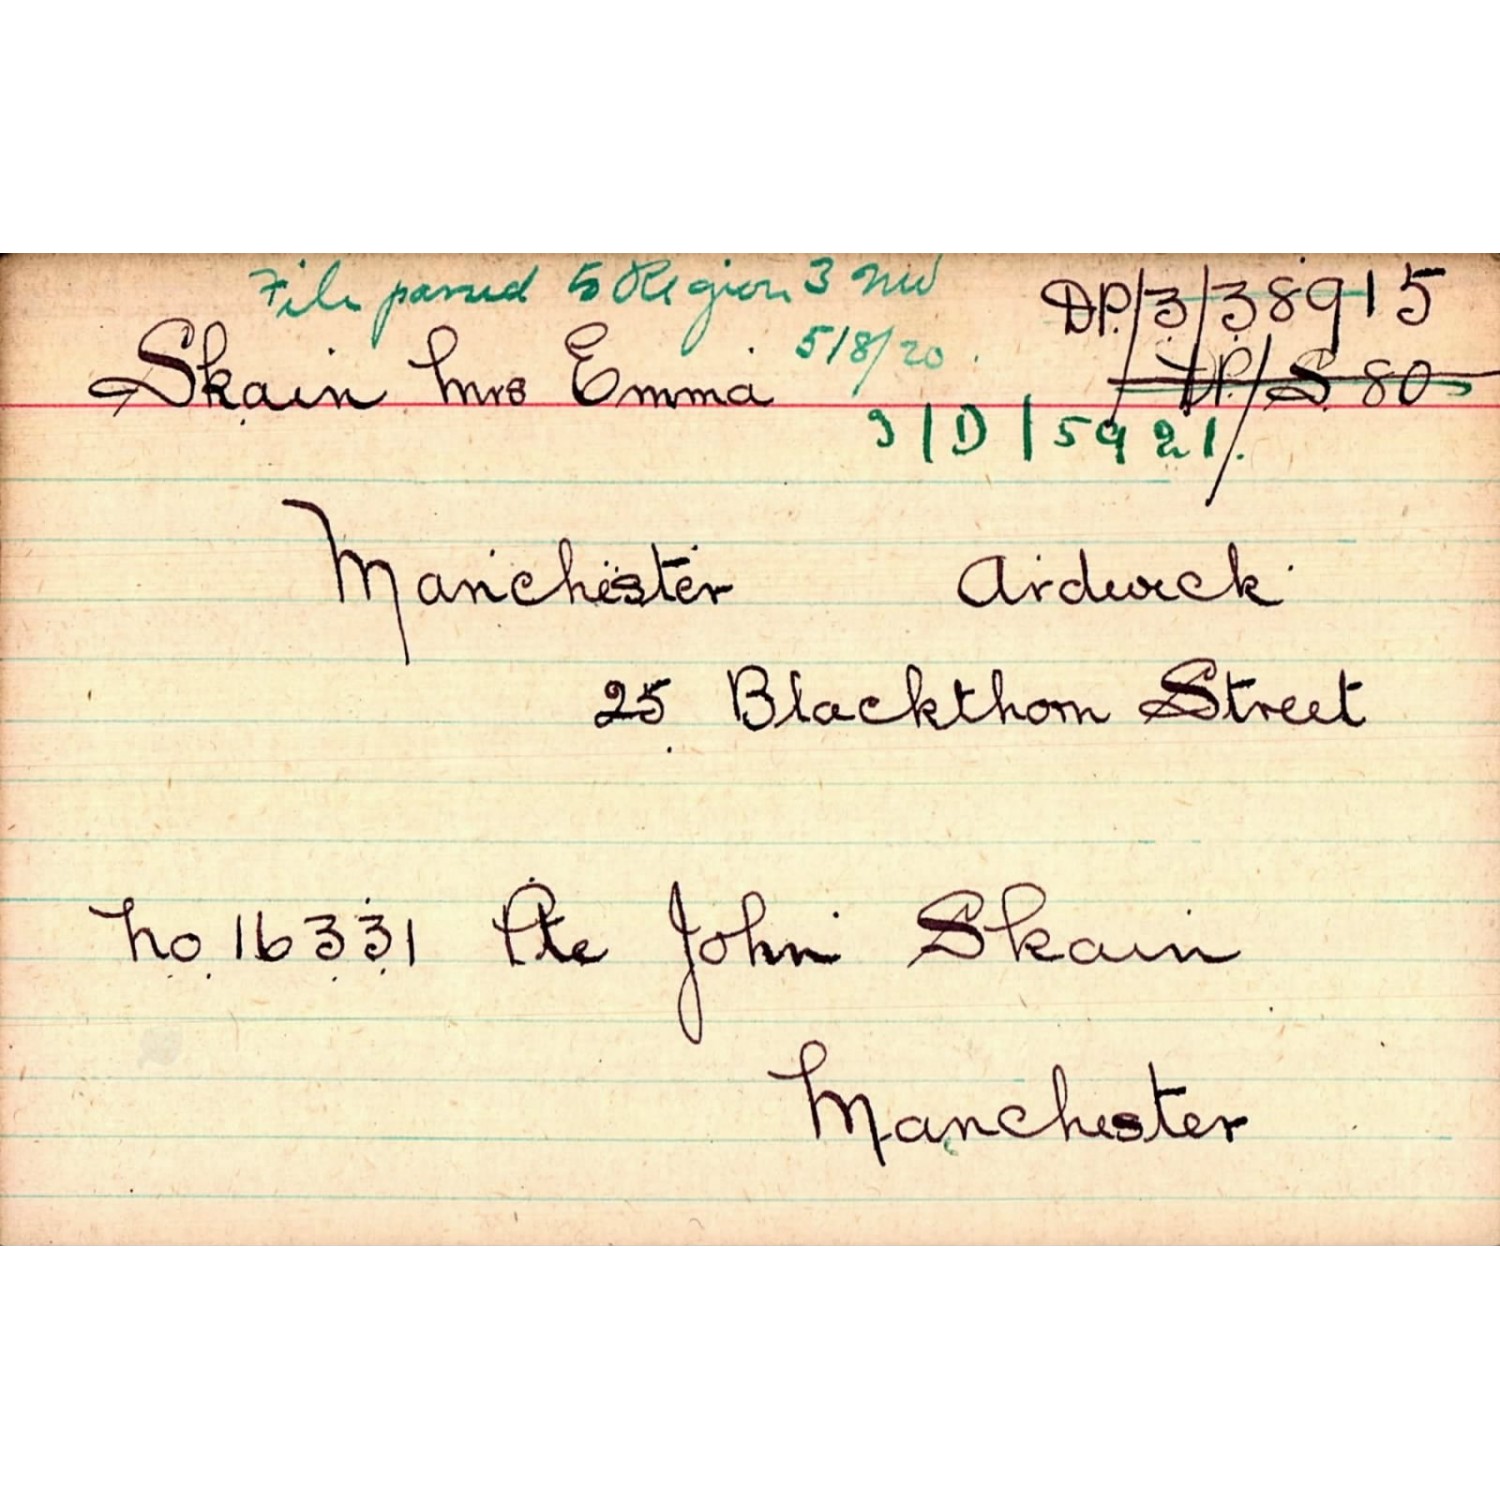 File passed to Region 3 NW
5/8/20
DP/3/38915
Skain Mrs Emma
DP/S 80
3/D/5921.
Manchester Ardwick
25 Blackthorn Street
No 16331 Pte John Skain
Manchester